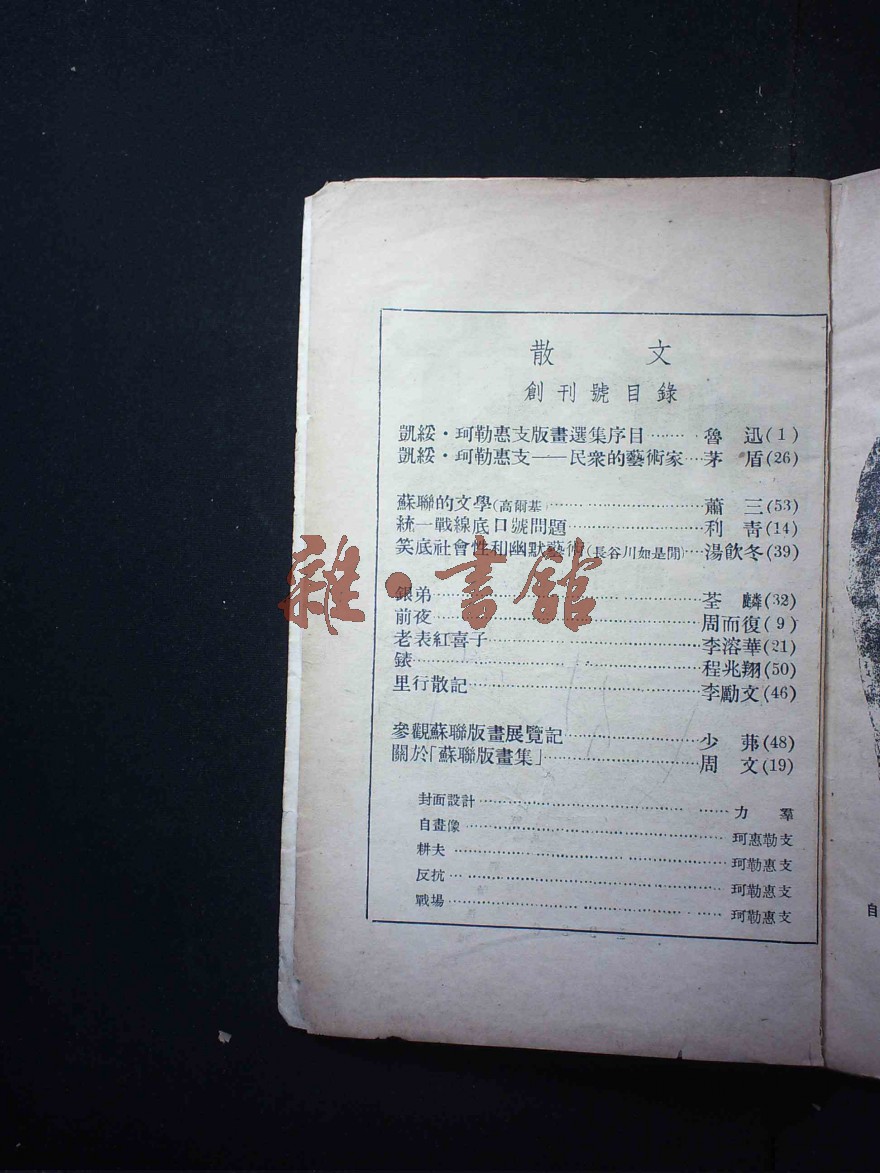 散文
創刊號目錄
凱綏·珂勒惠支版畫選集序目……魯迅(1)
凱綏·珂勒惠支——民衆的藝術家…茅盾(26)
蘇聯的文學(高爾基)……蕭三(53)
統一戰線底口號問題……利青(14)
笑底社會性和幽默藝術(長谷川如是閒)…湯飲冬(39)
銀弟……荃麟(32)
前夜……周而復(9)
老表紅喜子……李溶華(21)
錶……程兆翔(50)
里行散記……李勵文(46)
參觀蘇聯版畫展覽記……少茀(48)
關於「蘇聯版畫集」……周文(19)
封面設計……力羣
自畫像……珂惠勒支
耕夫……珂勒惠支
反抗……珂勒惠支
戰場……珂勒惠支
雜·書館
自